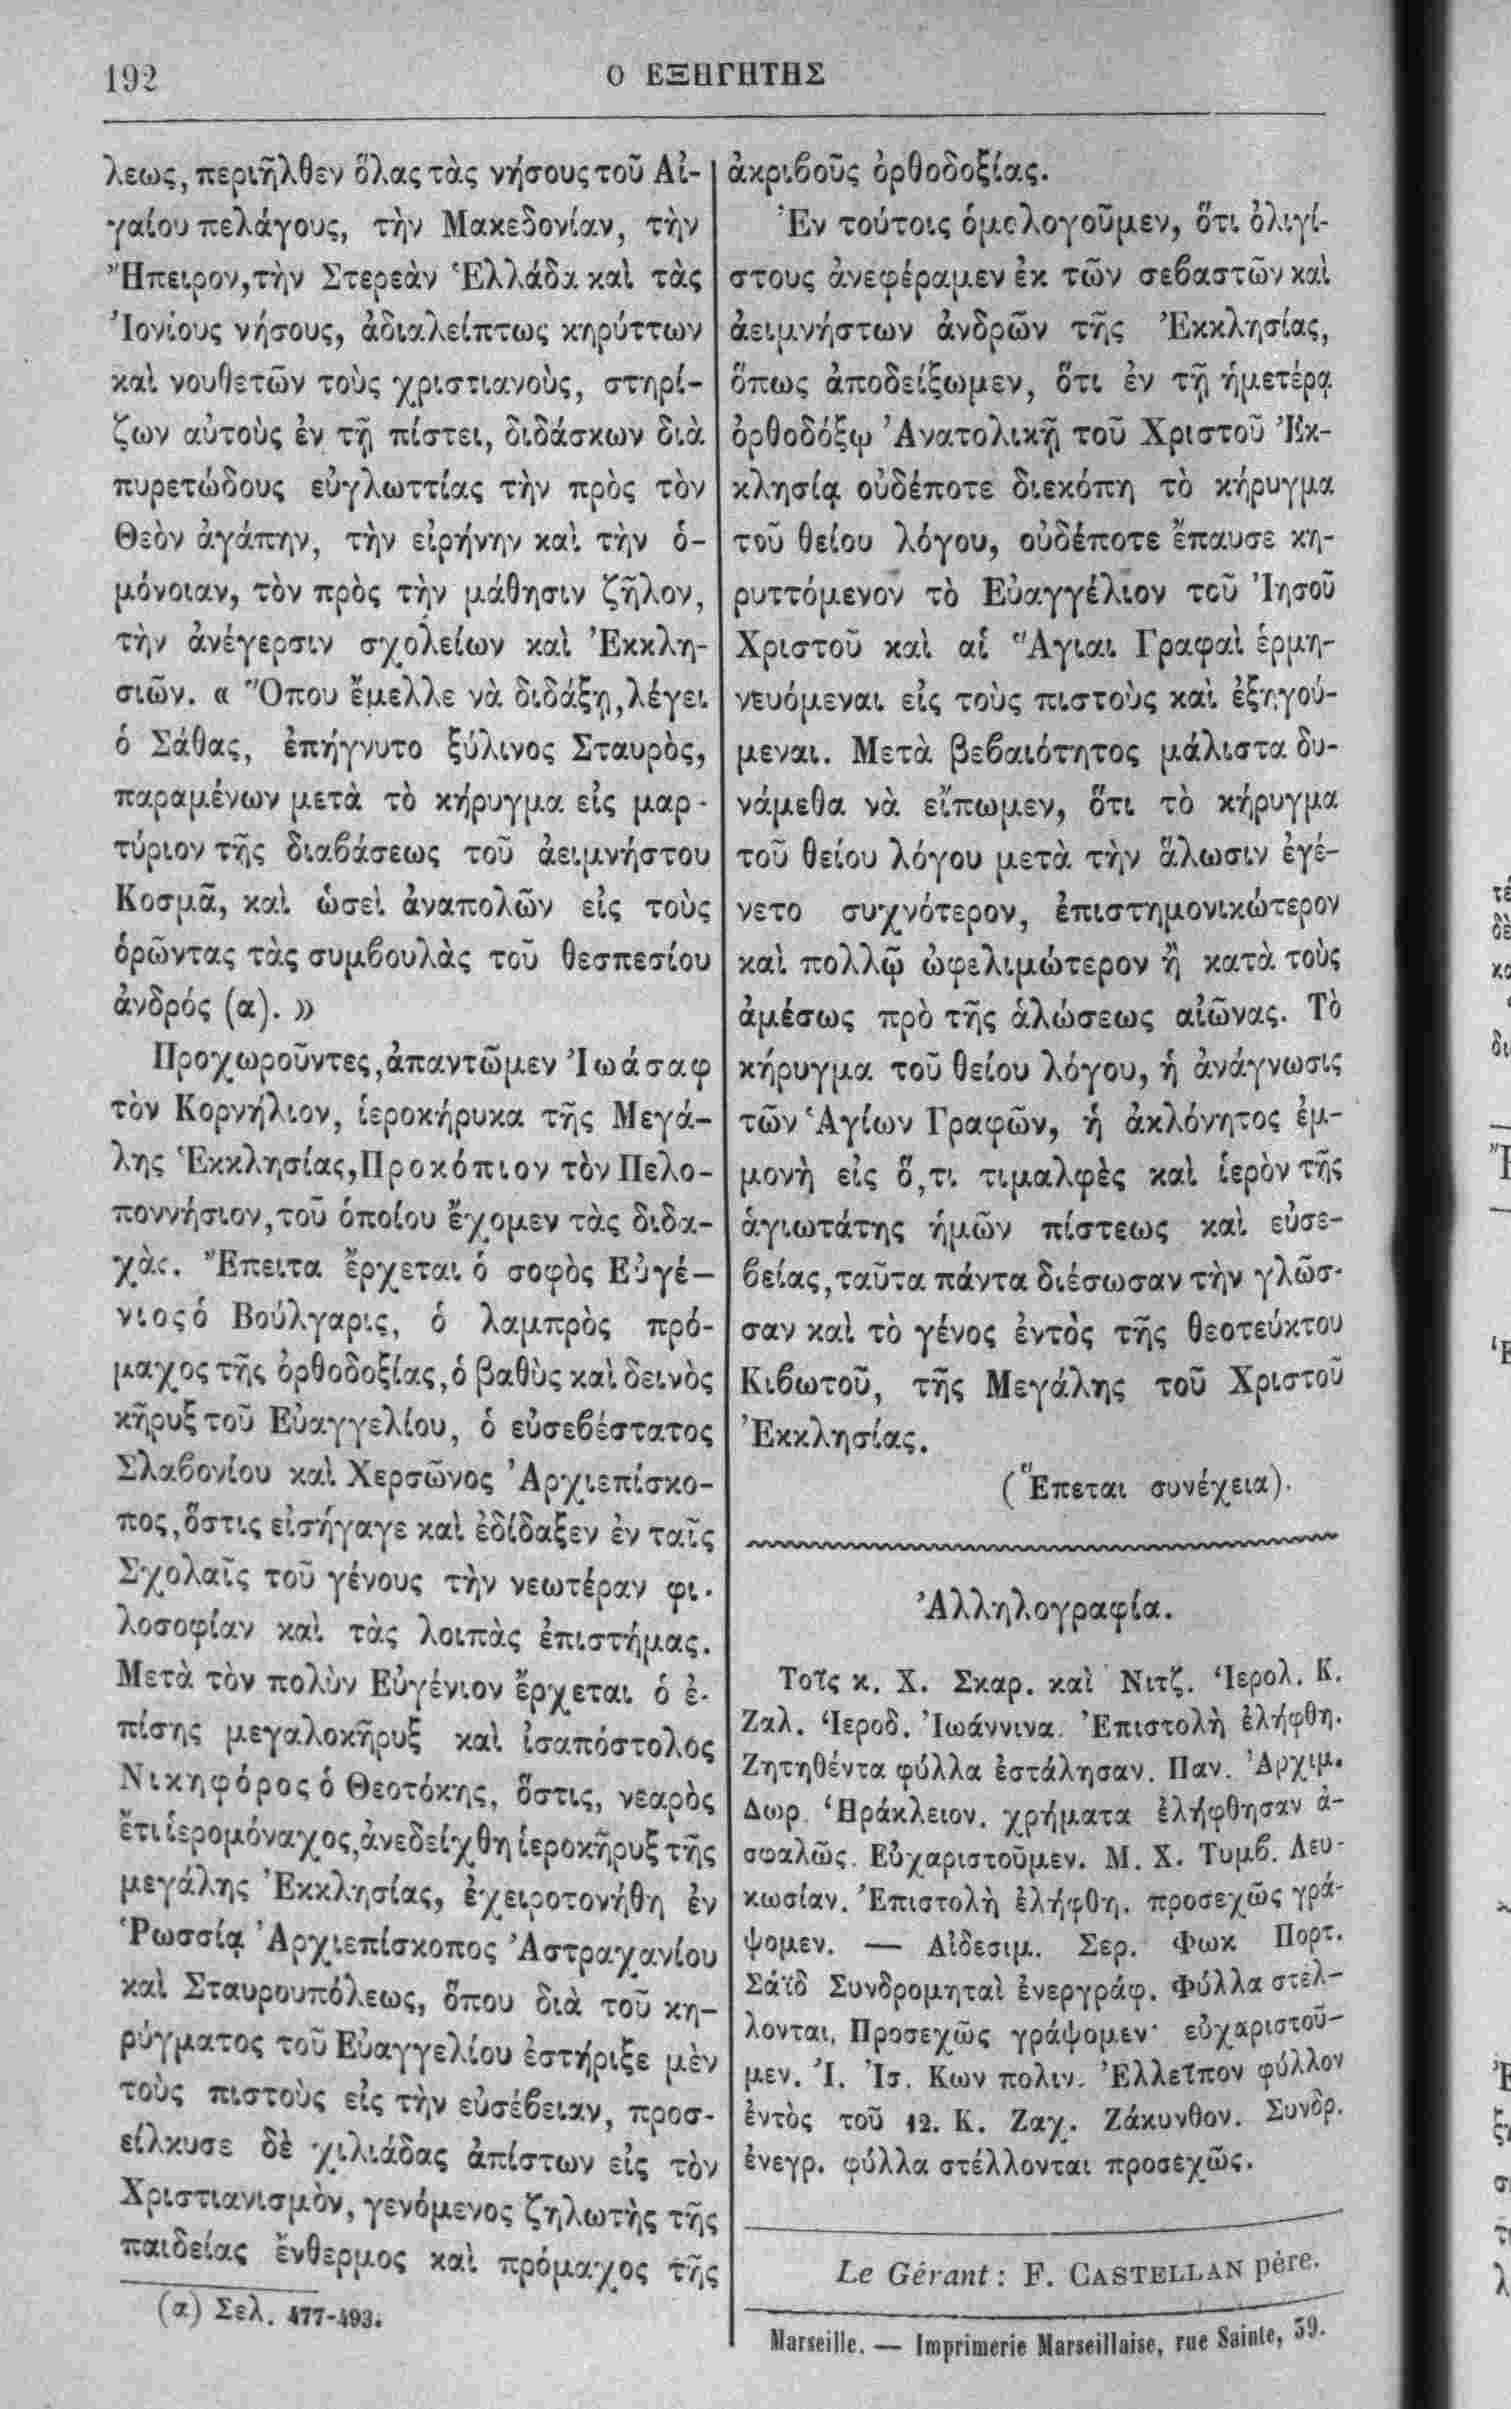 192
Ο ΕΞΗΓΗΤΗΣ
λεως, περιῆλθεν ὅλας τὰς νήσους τοῦ Αἰ-
γαίου πελάγους, τὴν Μακεδονίαν, τὴν
Ἤπειρον, τὴν Στερεὰν Ἑλλάδα καὶ τὰς
Ἰονίους νήσους, ἀδιαλείπτως κηρύττων
καὶ νουθετῶν τοὺς χριστιανοὺς, στηρί-
ζων αὐτοὺς ἐν τῇ πίστει, διδάσκων διὰ
πυρετώδους εὐγλωττίας τὴν πρὸς τὸν
Θεὸν ἀγάπην, τὴν εἰρήνην καὶ τὴν ὁ-
μόνοιαν, τὸν πρὸς τὴν μάθησιν ζῆλον,
τὴν ἀνέγερσιν σχολείων καὶ Ἐκκλη-
σιῶν. « Ὅπου ἔμελλε νὰ διδάξῃ, λέγει
ὁ Σάθας, ἐπήγνυτο ξύλινος Σταυρὸς,
παραμένων μετὰ τὸ κήρυγμα εἰς μαρ-
τύριον τῆς διαβάσεως τοῦ ἀειμνήστου
Κοσμᾶ, καὶ ὡσεὶ ἀναπολῶν εἰς τοὺς
ὁρῶντας τὰς συμβουλὰς τοῦ θεσπεσίου
ἀνδρός (α). »
Προχωροῦντες, ἀπαντῶμεν Ἰωάσαφ
τὸν Κορνήλιον, ἱεροκήρυκα τῆς Μεγά-
λης Ἐκκλησίας, Προκόπιον τὸν Πελο-
ποννήσιον, τοῦ ὁποίου ἔχομεν τὰς διδα-
χὰς. Ἔπειτα ἔρχεται ὁ σοφὸς Εὐγέ-
νιος ὁ Βούλγαρις, ὁ λαμπρὸς πρό-
μαχος τῆς ὀρθοδοξίας, ὁ βαθὺς καὶ δεινὸς
κῆρυξ τοῦ Εὐαγγελίου, ὁ εὐσεβέστατος
Σλαβονίου καὶ Χερσῶνος Ἀρχιεπίσκο-
πος, ὅστις εἰσήγαγε καὶ ἐδίδαξεν ἐν ταῖς
Σχολαῖς τοῦ γένους τὴν νεωτέραν φι-
λοσοφίαν καὶ τὰς λοιπὰς ἐπιστήμας.
Μετὰ τὸν πολὺν Εὐγένιον ἔρχεται ὁ ἐ-
πίσης μεγαλοκῆρυξ καὶ ἰσαπόστολος
Νικηφόρος ὁ Θεοτόκης, ὅστις, νεαρὸς
ἔτι ἱερομόναχος, ἀνεδείχθη ἱεροκῆρυξ τῆς
μεγάλης Ἐκκλησίας, ἐχειροτονήθη ἐν
Ῥωσσίᾳ Ἀρχιεπίσκοπος Ἀστραχανίου
καὶ Σταυρουπόλεως, ὅπου διὰ τοῦ κη-
ρύγματος τοῦ Εὐαγγελίου ἐστήριξε μὲν
τοὺς πιστοὺς εἰς τὴν εὐσέβειαν, προσ-
είλκυσε δὲ χιλιάδας ἀπίστων εἰς τὸν
Χριστιανισμὸν, γενόμενος ζηλωτὴς τῆς
παιδείας ἔνθερμος καὶ πρόμαχος τῆς
(α) Σελ. 477-493.
ἀκριβοῦς ὀρθοδοξίας.
Ἐν τούτοις ὁμολογοῦμεν, ὅτι ὀλιγί-
στους ἀνεφέραμεν ἐκ τῶν σεβαστῶν καὶ
ἀειμνήστων ἀνδρῶν τῆς Ἐκκλησίας,
ὅπως ἀποδείξωμεν, ὅτι ἐν τῇ ἡμετέρᾳ
ὀρθοδόξῳ Ἀνατολικῇ τοῦ Χριστοῦ Ἐκ-
κλησίᾳ οὐδέποτε διεκόπη τὸ κήρυγμα
τοῦ θείου λόγου, οὐδέποτε ἔπαυσε κη-
ρυττόμενον τὸ Εὐαγγέλιον τοῦ Ἰησοῦ
Χριστοῦ καὶ αἱ Ἅγιαι Γραφαὶ ἑρμη-
νευόμεναι εἰς τοὺς πιστοὺς καὶ ἐξηγού-
μεναι. Μετὰ βεβαιότητος μάλιστα δυ-
νάμεθα νὰ εἴπωμεν, ὅτι τὸ κήρυγμα
τοῦ θείου λόγου μετὰ τὴν ἅλωσιν ἐγέ-
νετο συχνότερον, ἐπιστημονικώτερον
καὶ πολλῷ ὠφελιμώτερον ἢ κατὰ τοὺς
ἀμέσως πρὸ τῆς ἁλώσεως αἰῶνας. Τὸ
κήρυγμα τοῦ θείου λόγου, ἡ ἀνάγνωσις
τῶν Ἁγίων Γραφῶν, ἡ ἀκλόνητος ἐμ-
μονὴ εἰς ὅ,τι τιμαλφὲς καὶ ἱερὸν τῆς
ἁγιωτάτης ἡμῶν πίστεως καὶ εὐσε-
βείας, ταῦτα πάντα διέσωσαν τὴν γλῶσ-
σαν καὶ τὸ γένος ἐντὸς τῆς θεοτεύκτου
Κιβωτοῦ, τῆς Μεγάλης τοῦ Χριστοῦ
Ἐκκλησίας.
(Ἕπεται συνέχεια).
Ἀλληλογραφία.
Τοῖς κ. Χ. Σκαρ. καὶ Νιτζ. Ἱερολ. Κ.
Ζαλ. Ἱεροδ. Ἰωάννινα. Ἐπιστολὴ ἐλήφθη.
Ζητηθέντα φύλλα ἐστάλησαν. Παν. Ἀρχιμ.
Δωρ. Ἡράκλειον. χρήματα ἐλήφθησαν ἀ-
σφαλῶς. Εὐχαριστοῦμεν. Μ. Χ. Τυμβ. Λευ-
κωσίαν. Ἐπιστολὴ ἐλήφθη. προσεχῶς γρά-
ψομεν. — Αἰδεσιμ. Σερ. Φωκ Πορτ.
Σάϊδ Συνδρομηταὶ ἐνεργράφ. Φύλλα στέλ-
λονται, Προσεχῶς γράψομεν· εὐχαριστοῦ-
μεν. Ἰ. Ἰσ. Κων πολιν. Ἐλλεῖπον φύλλον
ἐντὸς τοῦ 12. Κ. Ζαχ. Ζάκυνθον. Συνδρ.
ἐνεγρ. φύλλα στέλλονται προσεχῶς.
Le Gérant : F. CASTELLAN père.
Marseille. — Imprimerie Marseillaise, rue Sainte, 39.